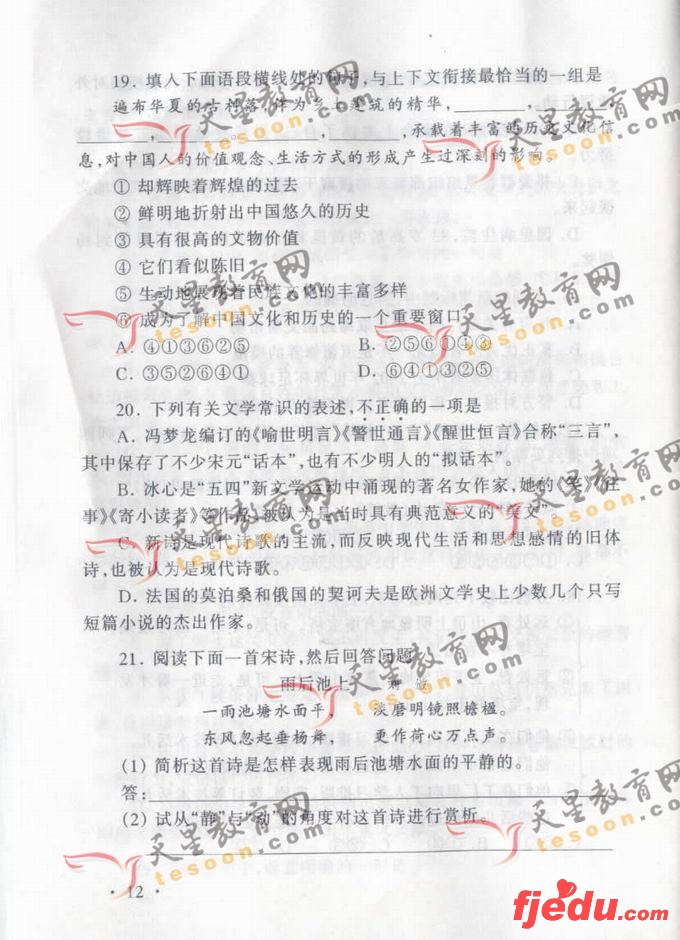 19. 填入下面语段横线处的句子,与上下文衔接最恰当的一组是
遍布华夏的古村落,作为乡土建筑的精华,
承载着丰富的历史文化信
息,对中国人的价值观念、生活方式的形成产生过深刻的影响。
① 却辉映着辉煌的过去
② 鲜明地折射出中国悠久的历史
③ 具有很高的文物价值
④ 它们看似陈旧
⑤ 生动地展现着民族文化的丰富多样
⑥ 成为了解中国文化和历史的一个重要窗口
A. ④①③⑥②⑤ B. ②⑤⑥①④③
C. ③⑤②⑥④① D. ⑥④①③②⑤
20. 下列有关文学常识的表述,不正确的一项是
A. 冯梦龙编订的《喻世明言》《警世通言》《醒世恒言》合称“三言”,
其中保存了不少宋元“话本”,也有不少明人的“拟话本”。
B. 冰心是“五四”新文学运动中涌现的著名女作家,她的《笑》《往
事》《寄小读者》等作品,被认为是当时具有典范意义的“美文”
C. 新诗是现代诗歌的主流,而反映现代生活和思想感情的旧体
诗,也被认为是现代诗歌。
D. 法国的莫泊桑和俄国的契诃夫是欧洲文学史上少数几个只写
短篇小说的杰出作家。
21. 阅读下面一首宋诗,然后回答问题。
雨后池上
一雨池塘水面平, 淡磨明镜照檐楹。
东风忽起垂杨舞, 更作荷心万点声。
(1) 简析这首诗是怎样表现雨后池塘水面的平静的。
答:
(2) 试从“静”与“动”的角度对这首诗进行赏析。
· 12 ·
天星教育网
tesoon.com
天星教育网
tesoon.com
天星教育网
tesoon.com
天星教育网
tesoon.com
天星教育网
tesoon.com
天星教育网
tesoon.com
天星教育网
tesoon.com
天星教育网
tesoon.com
fjedu.com